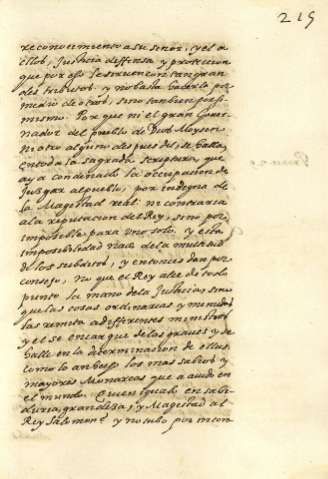 215
reconocimiento a su señor, y el a
ellos, Justicia deffensa y proteccion
que por esso le siruen con tan gran
des tributos, y no basta hacerlo por
medio de otros, sino tambien por si
mismo. Por que ni el gran Gouer
nador del pueblo de Dios Moysen
ni otro alguno despues del, se halla
en toda la sagrada scriptura, que
aya condenado la occupacion de
Juzgar al pueblo, por indigna de
la Magestad real ni contraria
a la reputacion del Rey, sino por
impossible para uno solo, y esta
impossibilidad nace de la multitud
de los subditos, y entonces dan por
consejo, no que el Rey alce de todo
punto la mano de la Justicia, sino
que las cosas ordinarias y menudas
las remita a differentes ministros
y el se encargue de las graues y se
halle en la determinacion de ellas,
como lo an hecho los mas sabios y
mayores Monarcas que a auido en
el mundo. Quien igualo en sabi
duria, grandeza, y Magestad al
Rey Salomon? y no tubo por incon